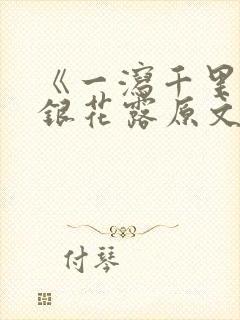 《一泻千里
银花露原文
付琴